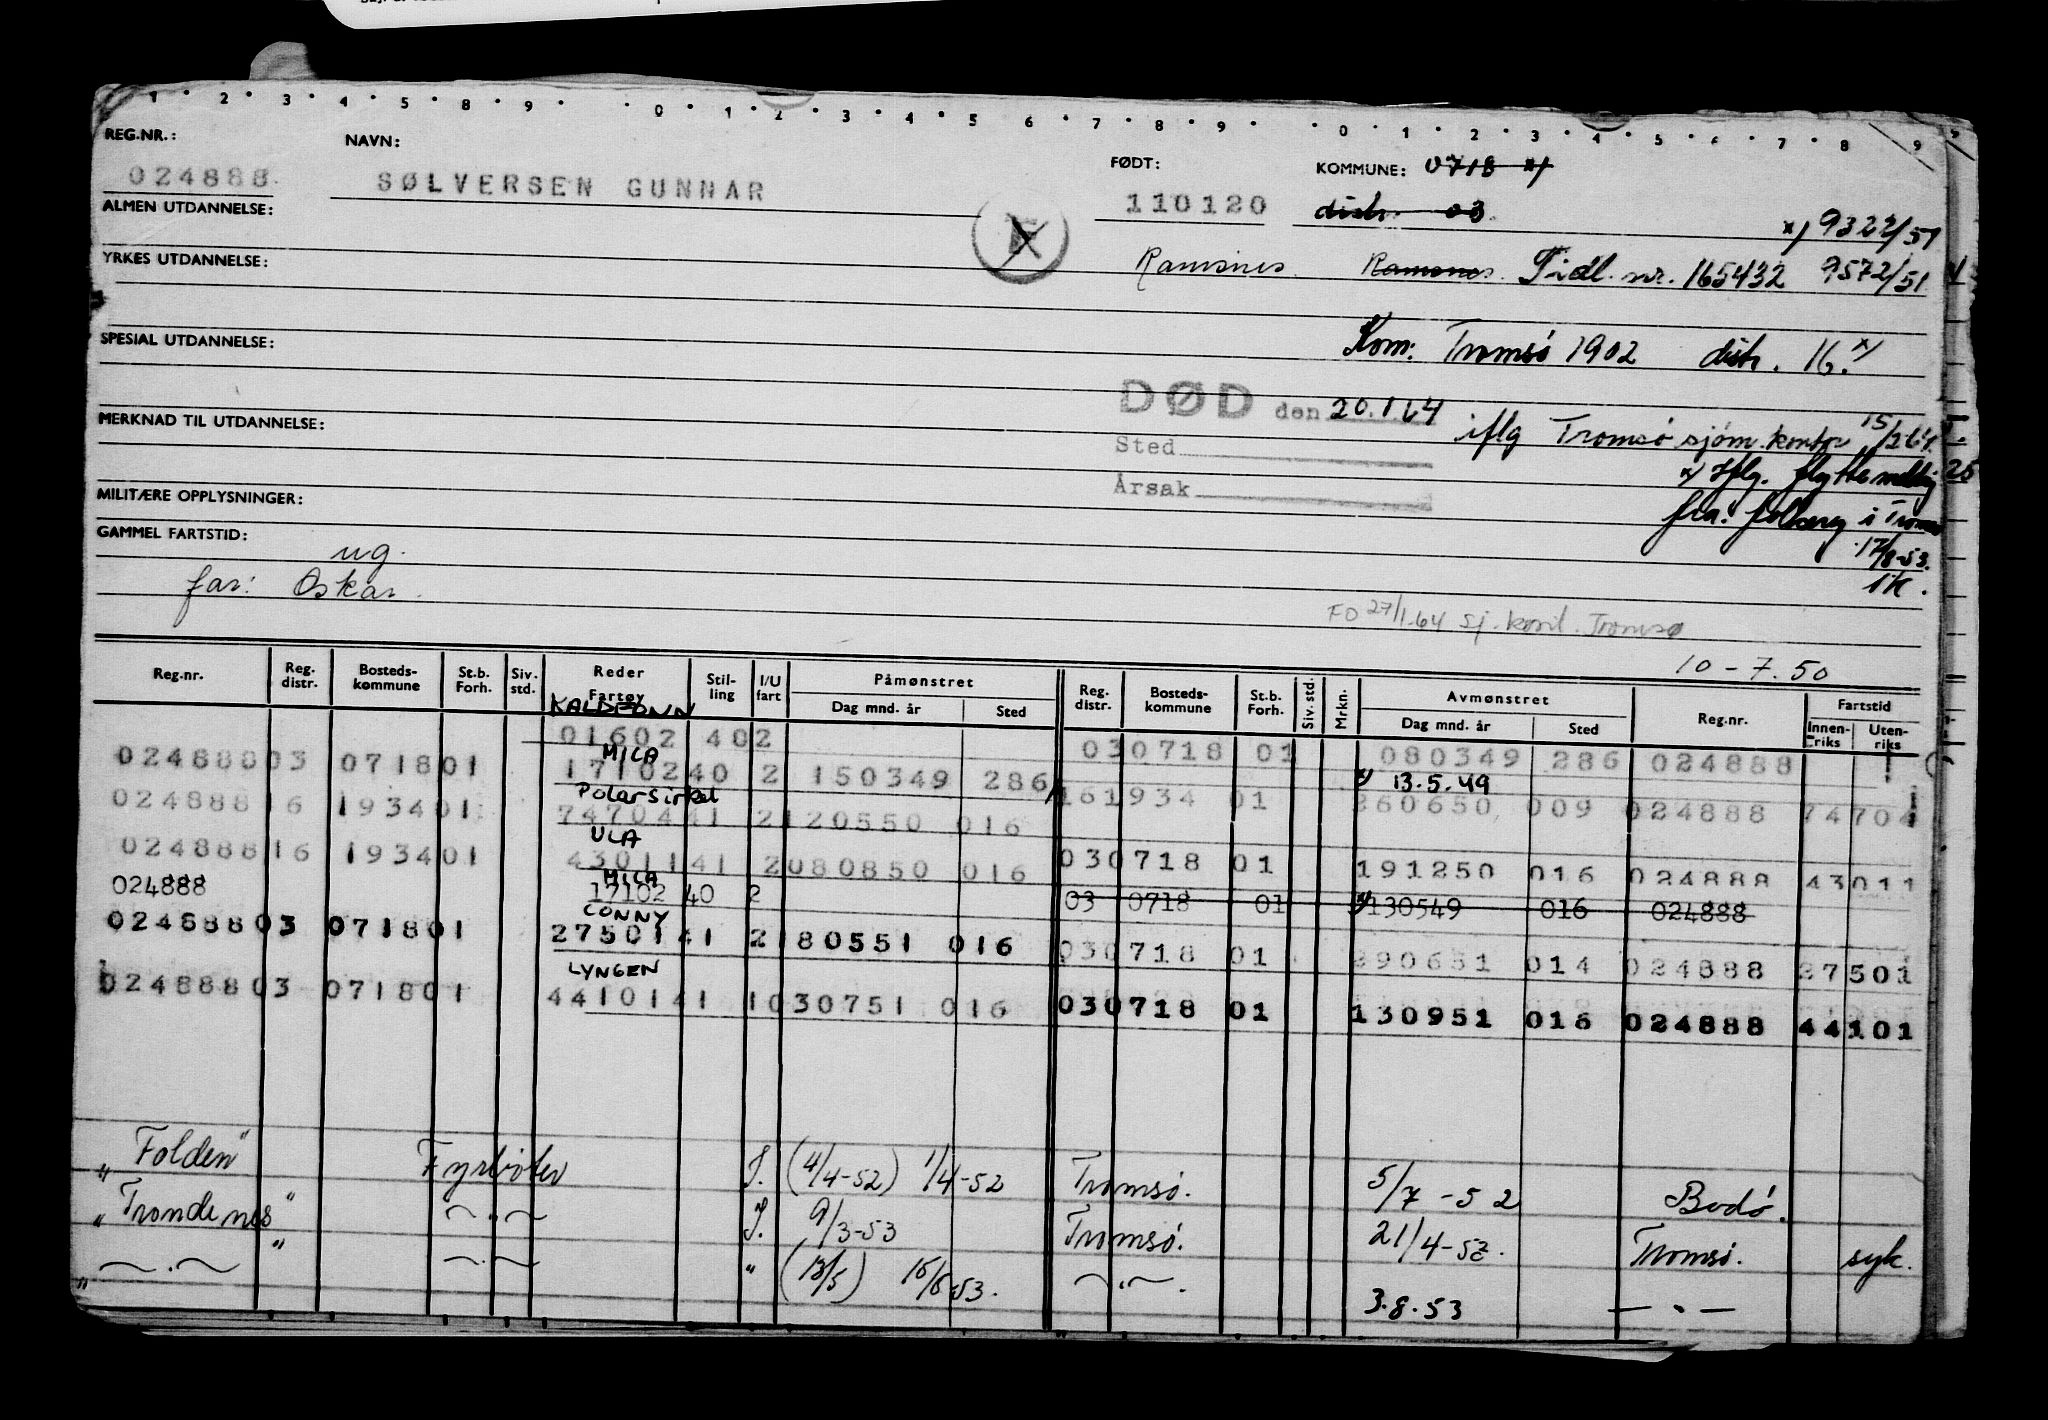 1 2 3 4 5 8 9 0 1 2 3 4 5 6 7 8 9 0 1 2 3 4 5 6 7 8 9
REG.NR.: NAVN: FØDT: KOMMUNE: 0718 x)
024888 SØLVERSEN GUNNAR 110120 distr. 03.
ALMEN UTDANNELSE: x) 9322/51
YRKES UTDANNELSE: Ramsnes Ramsnes. Tidl. nr. 165432 9572/51
SPESIAL UTDANNELSE: Kom: Tromsø 1902 distr. 16. x)
DØD den 20.1 64 iflg Tromsø sjøm.kontor 15/2 64
MERKNAD TIL UTDANNELSE:
Sted
x) Iflg. flyttemelding
Årsak
MILITÆRE OPPLYSNINGER: fra folkereg i Tromsø
GAMMEL FARTSTID: ug. 17/8-53.
far: Oskar. 1K.
FO 27/1.64 Sj. kont. Tromsø
10-7.50
Reg.nr. Reg. distr. Bosteds-kommune St.b. Forh. Siv. std. Reder Fartøy Stil-ling I/U fart Påmønstret Dag mnd. år Sted Reg. distr. Bosteds-kommune St.b. Forh. Siv. std. Mrkn. Avmønstret Dag mnd. år Sted Reg.nr. Fartstid Innen-riks Uten-riks
KALDFONN
01602 40 2 03 0718 01 080349 286 024888
MILA
024888 03 0718 01 17102 40 2 150349 286 x) 13.5.49
Polarsirkel
024888 16 1934 01 74704 41 2 120550 016 16 1934 01 260650 009 024888 74704
ULA
024888 16 1934 01 43011 41 2 080850 016 03 0718 01 191250 016 024888 43011
MILA
024888 17102 40 2 03 0718 01 x) 130549 016 024888
CONNY
024888 03 0718 01 27501 41 2 180551 016 03 0718 01 290651 014 024888 27501
LYNGEN
024888 03 0718 01 44101 41 1 030751 016 03 0718 01 130951 016 024888 44101
"Folden" Fyrbøter I. (4/4-52) 1/4-52 Tromsø. 5/7-52 Bodø.
"Trondenes" ~ . ~ I. 9/3-53 Tromsø. 21/4-53. Tromsø. syk.
" ~ . ~ " ~ . ~ " (13/5) 15/6-53. ~ . ~ . 3.8.53 — . —